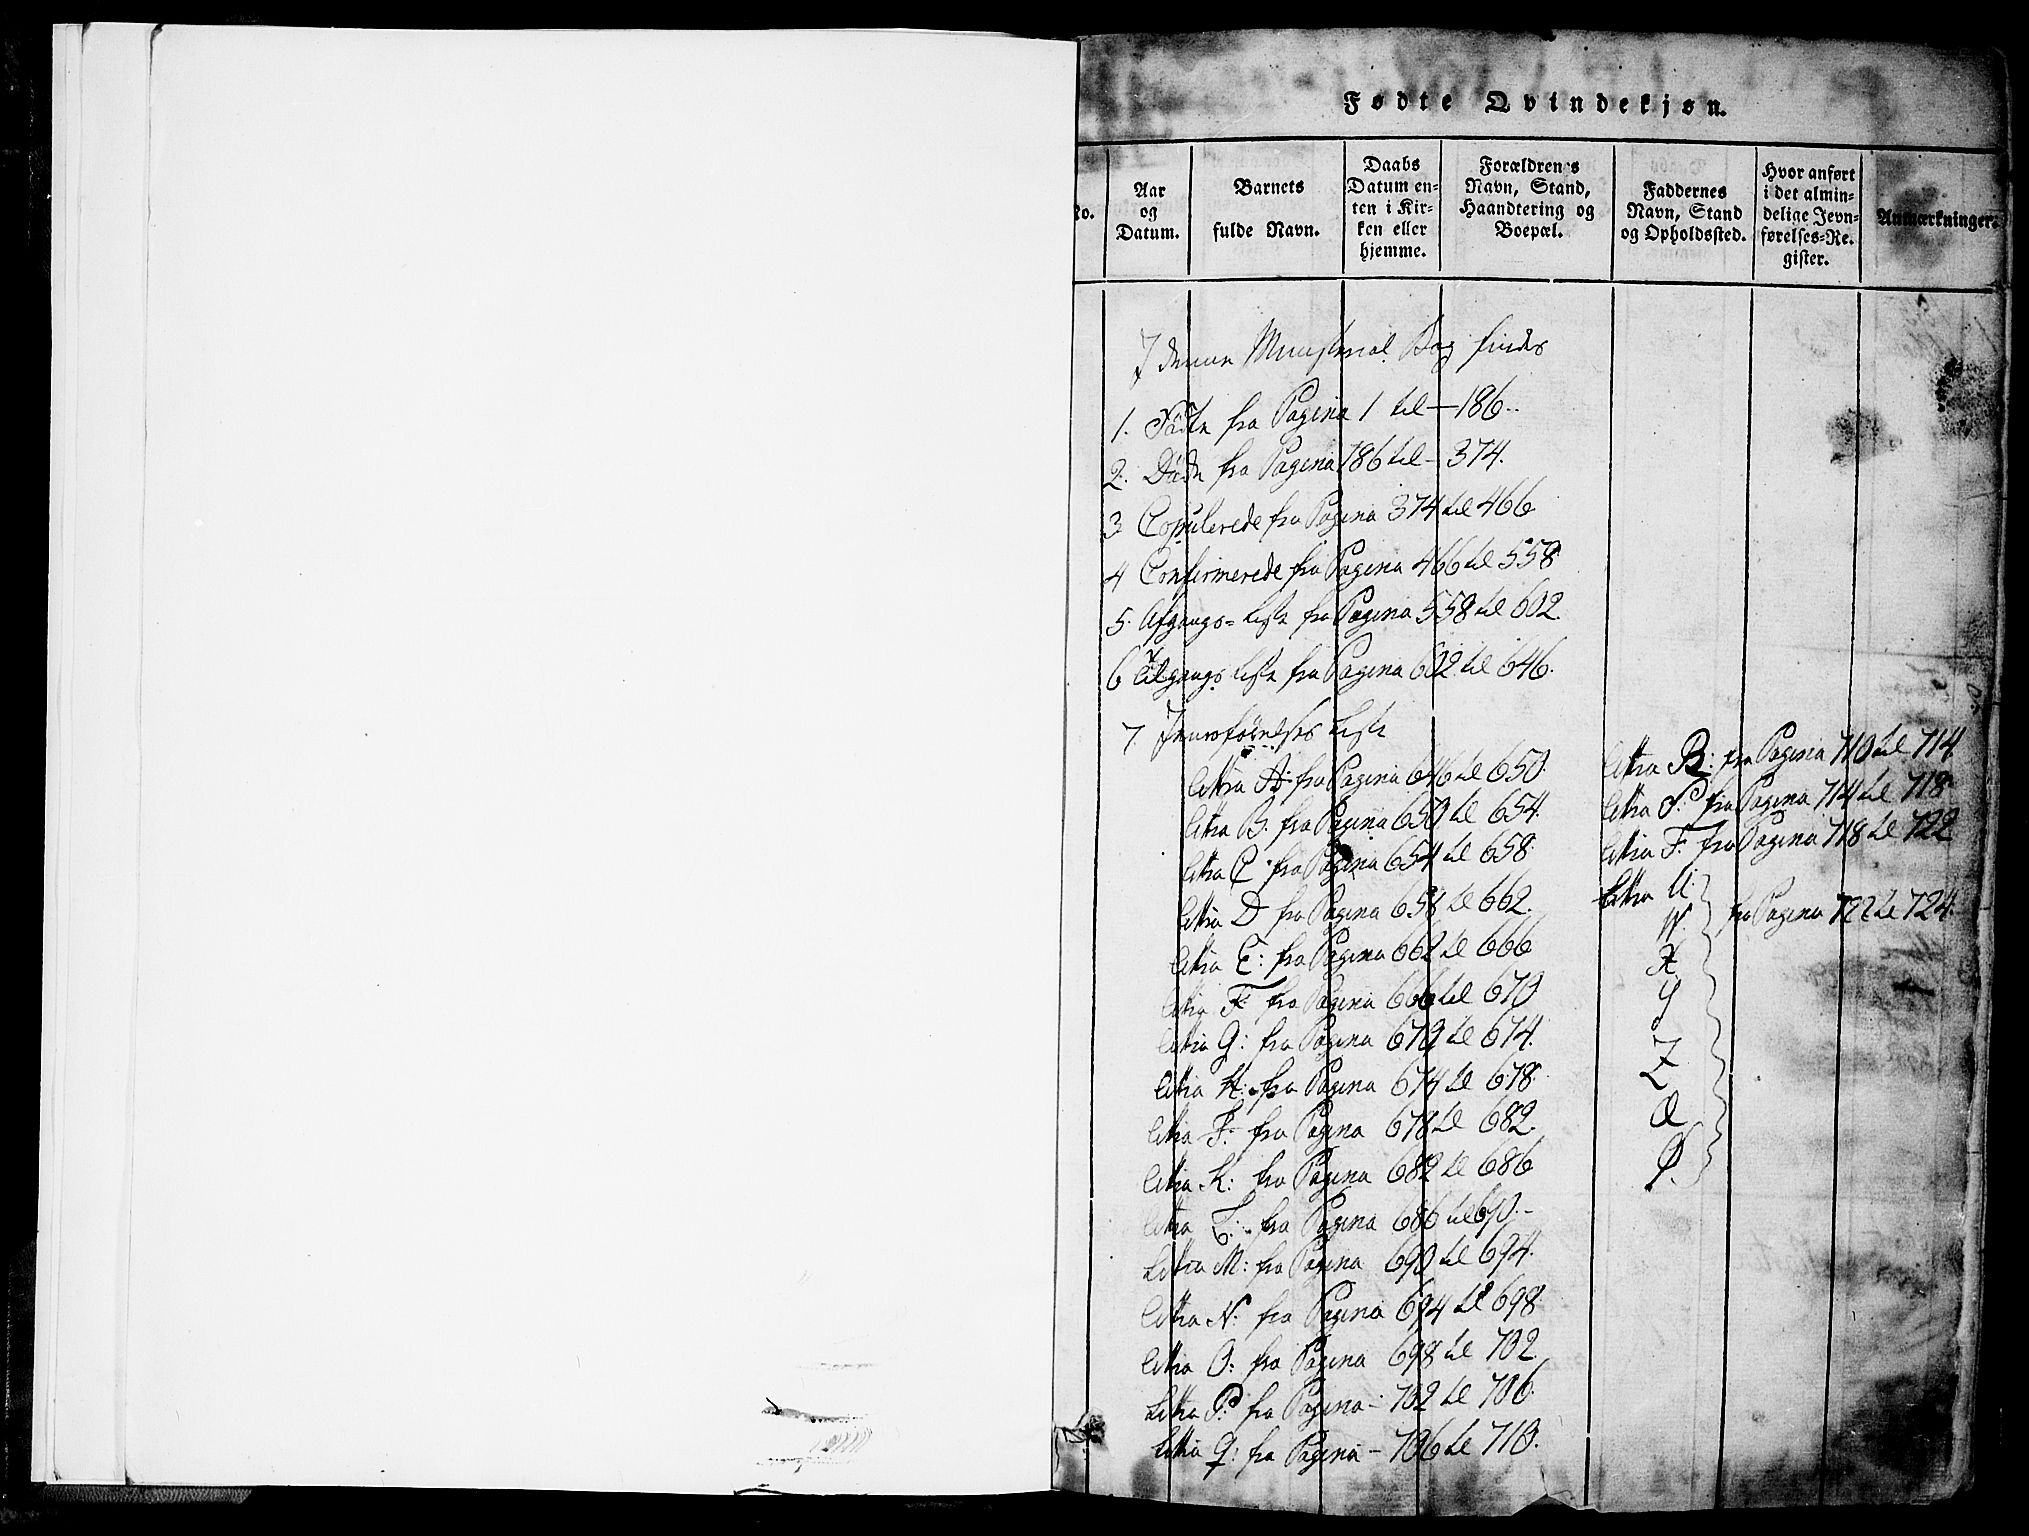 Fødte Qvindekjøn.
No.
Aar
og
Datum.
Barnets
fulde Navn.
Daabs
Datum en-
ten i Kir-
ken eller
hjemme.
Forældrenes
Navn, Stand,
Haandtering og
Boepæl.
Faddernes
Navn, Stand
og Opholdssted.
Hvor anført
i det almin-
delige Jevn-
førelses-Re-
gister.
Anmærkninger.
I denne Ministerial Bog findes
1. Fødte fra Pagina 1 til — 186.
2. Døde fra Pagina 186 til — 374.
3 Copulerede fra Pagina 374 til 466
4 Confirmerede fra Pagina 466 til 558
5. Afgangs-liste fra Pagina 558 til 602.
6 Tilgangs liste fra Pagina 602 til 646.
7. Jevnførelses liste
littra A: fra Pagina 646 til 650.
littra B. fra Pagina 650 til 654.
littra C fra Pagina 654 til 658.
littra D fra Pagina 658 til 662.
littra E: fra Pagina 662 til 666
littra F fra Pagina 666 til 670
littra G: fra Pagina 670 til 674.
littra H: fra Pagina 674 til 678.
littra I: fra Pagina 678 til 682.
littra K: fra Pagina 682 til 686
littra L: fra Pagina 686 til 690.
littra M: fra Pagina 690 til 694.
littra N: fra Pagina 694 til 698.
littra O: fra Pagina 698 til 702
littra P: fra Pagina - 702 til 706.
littra Q: fra Pagina - 706 til 710.
littra R: fra Pagina 710 til 714
littra S: fra Pagina 714 til 718
littra T. fra Pagina 718 til 722
littra U.
W. fra Pagina 722 til 724.
X
Y
Z
Æ
Ø.